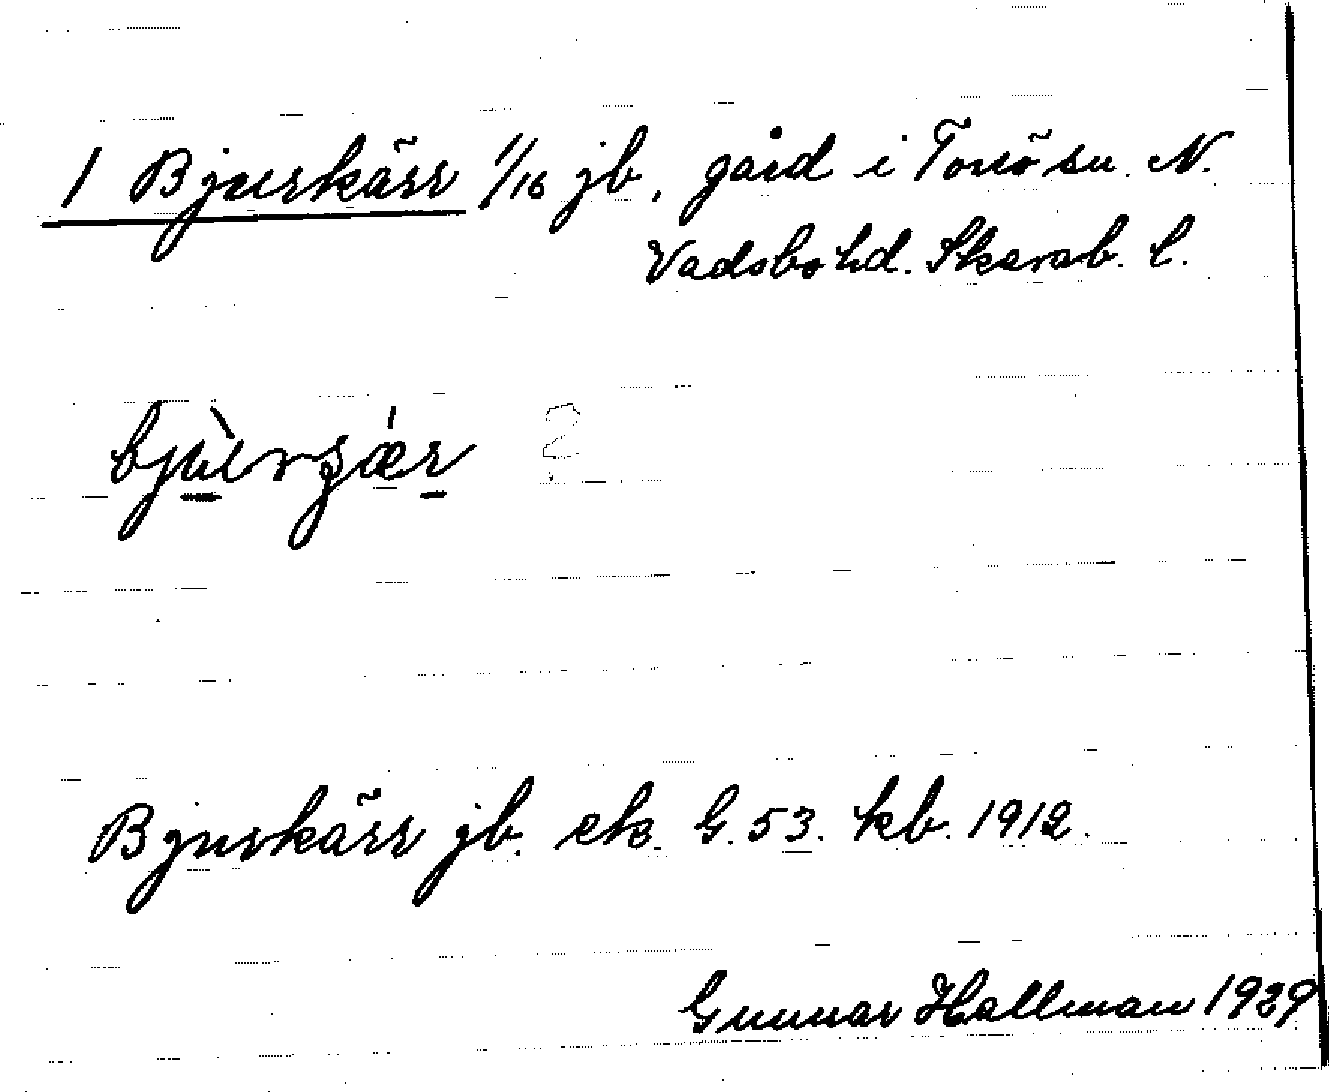 1 Bjurkärr 1/16 jb, gård i Torsö sn. N.
Vadsbo hd. Skarab. l.
2
Bjurkärr jb. ek. G. 53. kb. 1912.
Gunnar Hallman 1939